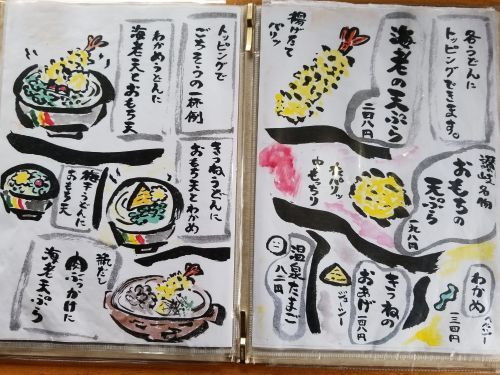 各うどんに
トッピングできます。
揚げたて
パリッ
海老の天ぷら
二四八円
讃岐名物
おもちの
天ぷら
一九八円
外パリッ
中もっちり
わかめ
一三四円
きつねの
おあげ
一四八円
ジューシー
温泉たまご
八八円
トッピングで
ごちそうの一杯例
わかめうどんに
海老天とおもち天
きつねうどんに
おもち天とわかめ
梅干うどんに
おもち天
肉ぶっかけに
海老天ぷら